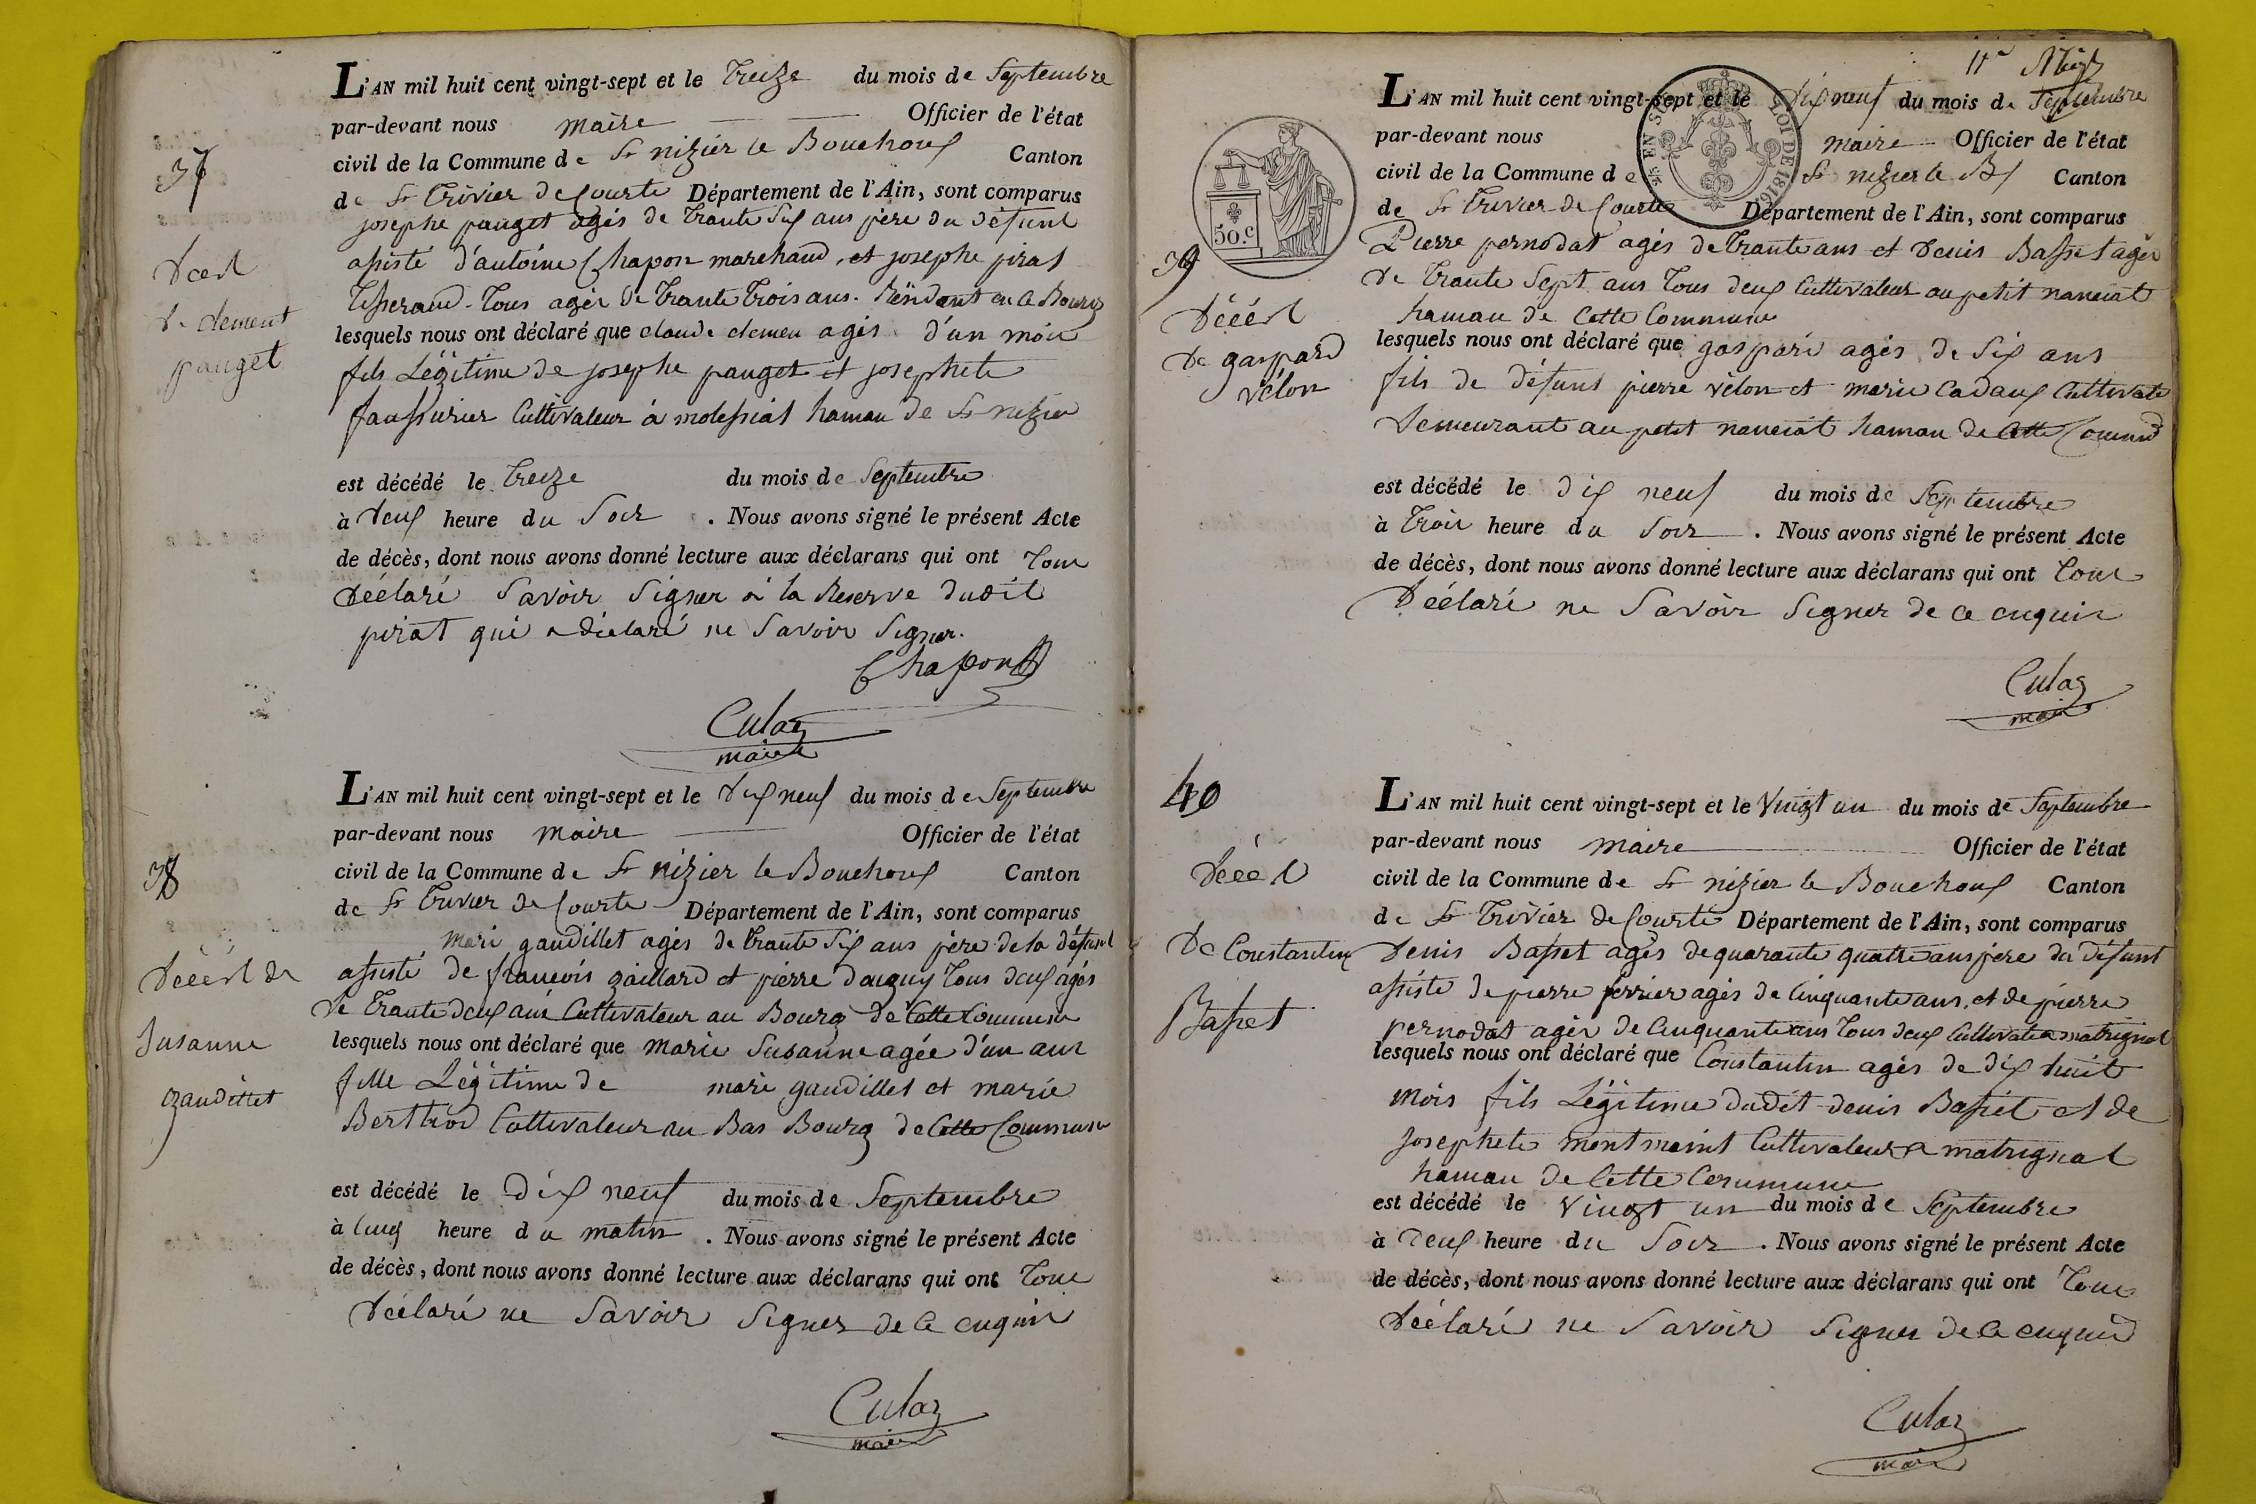 37
Décès
de clement
pauget
L'AN mil huit cent vingt-sept et le treize du mois de Septembre
par-devant nous maire Officier de l'état
civil de la Commune de St nizier le Bouchoux Canton
de St trivier de Courte Département de l'Ain, sont comparus
josephe pauget agés de trante six ans pere du défunt
assisté d'antoine Chapon marchand, et josephe pirat
tisserand. tous agés de trante trois ans. Résidant en ce Bourg
lesquels nous ont déclaré que claude clemen agés d'un mois
fils Légitime de josephe pauget et josephete
faussurier Cultivateur à molessiat hamau de St nizier
est décédé le treize du mois de Septembre
à deux heure du Soir . Nous avons signé le présent Acte
de décès, dont nous avons donné lecture aux déclarans qui ont tous
Déclaré Savoir Signer à la Reserve dudit
pirat qui a déclaré ne Savoir Signer.
Chapon
Culaz
maire
38
Décès de
Susanne
gaudillet
L'AN mil huit cent vingt-sept et le dixneuf du mois de Septembre
par-devant nous maire Officier de l'état
civil de la Commune de St nizier le Bouchoux Canton
de St trivier de Courte Département de l'Ain, sont comparus
mari gaudillet agés de trante six ans père de la défunt
assisté de francois gaillard et pierre dauguy tous deux agés
de trante deux ans Cultivateur au Bourg de Cette Commune
lesquels nous ont déclaré que marie Susanne agée d'un ans
fille Légitime de mari gaudillet et marie
Berthod Cultivateur au Bas Bourg de Cette Commune
est décédé le dix neuf du mois de Septembre
à Cinq heure du matin . Nous avons signé le présent Acte
de décès, dont nous avons donné lecture aux déclarans qui ont tous
Déclaré ne Savoir Signer de ce enquis
Culaz
maire
11e
EN SUS
LOI DE 1816
50.c
39
Décés
De gaspard
vélon
L'AN mil huit cent vingt-sept et le dixneuf du mois de Septembre
par-devant nous maire Officier de l'état
civil de la Commune de St nizier le Bx Canton
de St trivier de Courte Département de l'Ain, sont comparus
Pierre pernodat agés de trante ans et denis Basset agés
de trante Sept ans tous deux Cultivateur au petit nanciat
hamau de Cette Commune
lesquels nous ont déclaré que gaspard agés de Six ans
fils de défunt pierre vélon et marie Cadaux Cultivate
demeurant au petit nanciat hamau de Cette Commune
est décédé le dix neuf du mois de Septembre
à trois heure du Soir . Nous avons signé le présent Acte
de décès, dont nous avons donné lecture aux déclarans qui ont tous
Déclaré ne Savoir Signer de ce enquis
Culaz
maire
40
Décés
De Constantin
Basset
L'AN mil huit cent vingt-sept et le Vingt un du mois de Septembre
par-devant nous maire Officier de l'état
civil de la Commune de St nizier le Bouchoux Canton
de St trivier de Courte Département de l'Ain, sont comparus
Denis Basset agés de quarante quatre ans père du défunt
assisté de pierre ferrier agés de Cinquante ans, et de pierre
pernodat agés de Cinquante ans tous deux Cultivate a matrignat
lesquels nous ont déclaré que Constantin agés de dix huit
mois fils Légitime dudit denis Basset et de
josephete montmaint Cultivateur a matrignat
hamau de Cette Commune
est décédé le Vingt un du mois de Septembre
à deux heure du Soir . Nous avons signé le présent Acte
de décès, dont nous avons donné lecture aux déclarans qui ont tous
Déclaré ne Savoir Signer de ce enquis
Culaz
maire